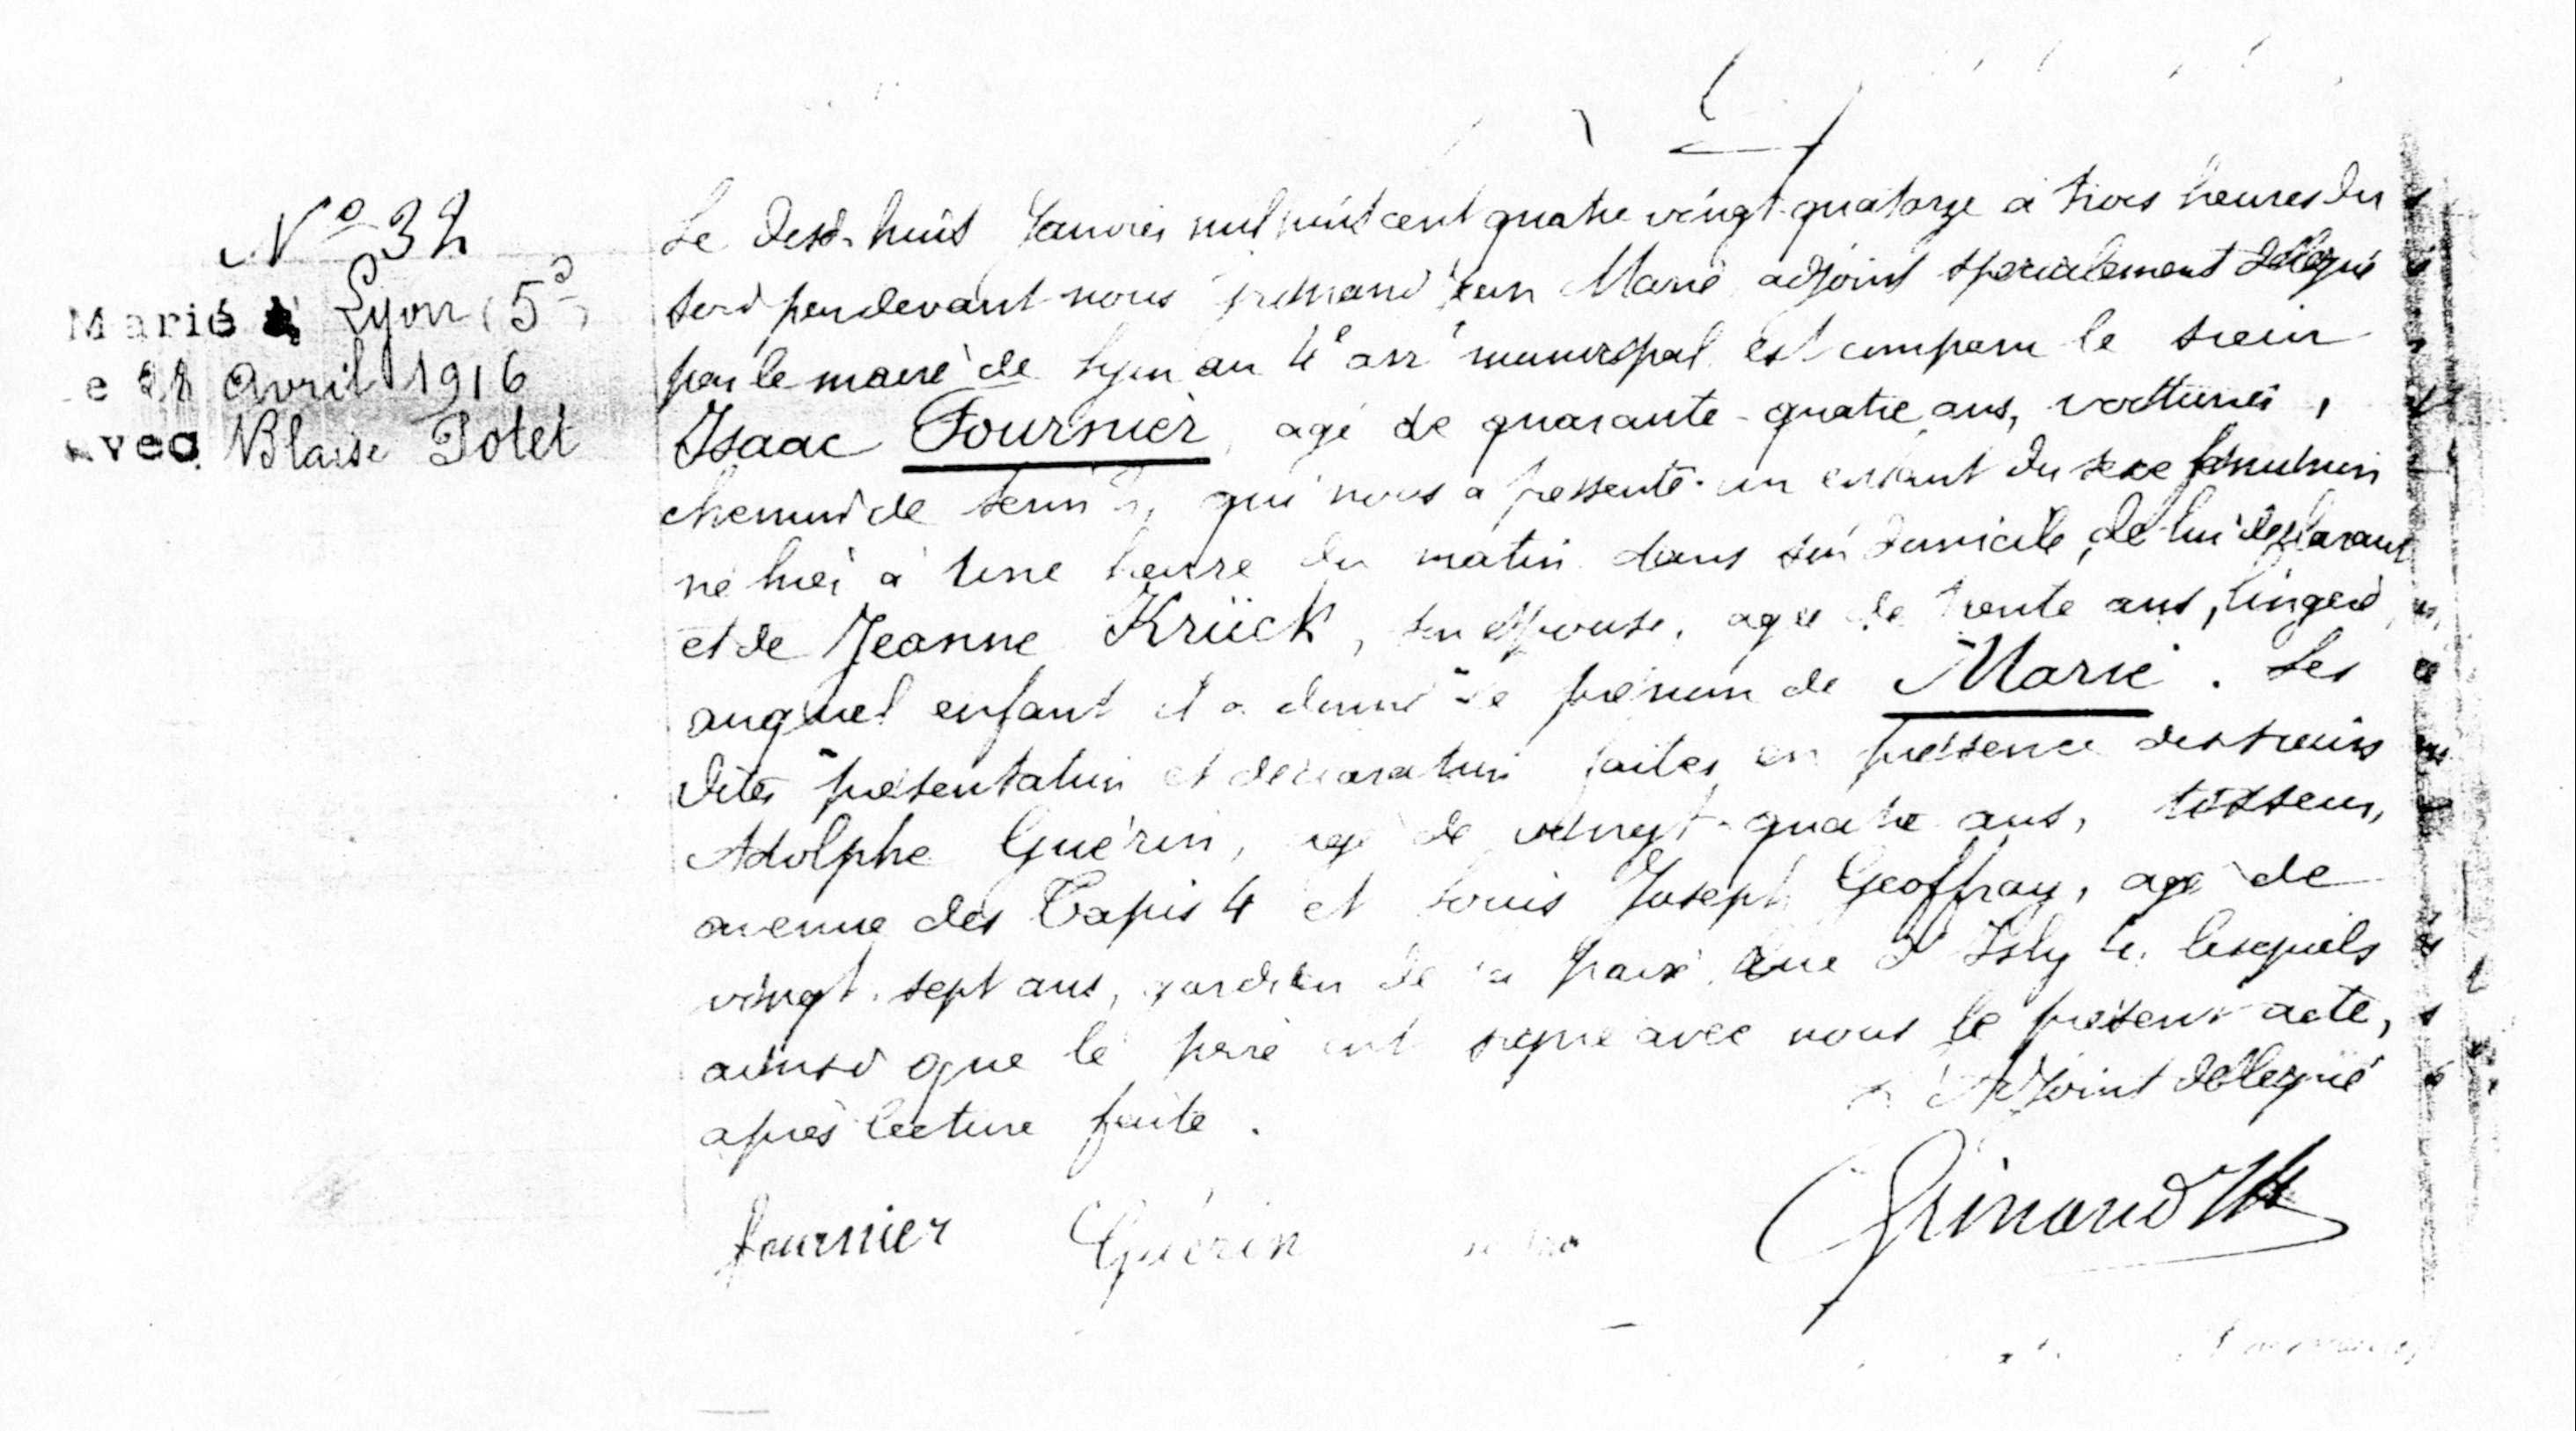 N° 32
Marié à Lyon (5e)
le 28 Avril 1916
avec Blaise Potet
Le dix-huit Janvier mil huit cent quatre vingt-quatorze à trois heures du
soir pardevant nous Grinand Jean Marie adjoint spécialement délégué
par le maire de Lyon au 4e arrt municipal est comparu le sieur
Isaac Fournier, agé de quarante-quatre ans, voiturier,
chemin de qui nous a présenté un enfant du sexe féminin
né hier à une heure du matin dans son domicile, de lui déclarant
et de Jeanne Krück, son épouse, agée de trente ans, lingère,
auquel enfant il a donné le prénom de Marie. Les
dites présentation et déclaration faites en présence des sieurs
Adolphe Guérin, agé de vingt-quatre ans, tisseur,
avenue des Tapis 4 et Louis Joseph Geoffray, agé de
vingt-sept ans, gardien de la paix rue d'Isly lesquels
ainsi que le père ont signé avec nous le présent acte,
après lecture faite.
L'Adjoint délégué
Fournier Guérin Grinand